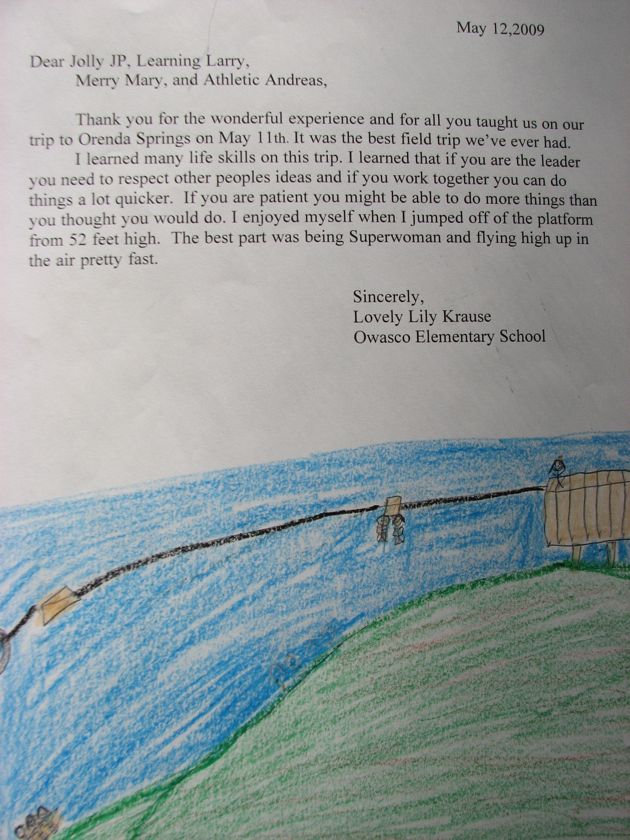 May 12,2009
Dear Jolly JP, Learning Larry,
Merry Mary, and Athletic Andreas,
Thank you for the wonderful experience and for all you taught us on our
trip to Orenda Springs on May 11th. It was the best field trip we've ever had.
I learned many life skills on this trip. I learned that if you are the leader
you need to respect other peoples ideas and if you work together you can do
things a lot quicker. If you are patient you might be able to do more things than
you thought you would do. I enjoyed myself when I jumped off of the platform
from 52 feet high. The best part was being Superwoman and flying high up in
the air pretty fast.
Sincerely,
Lovely Lily Krause
Owasco Elementary School